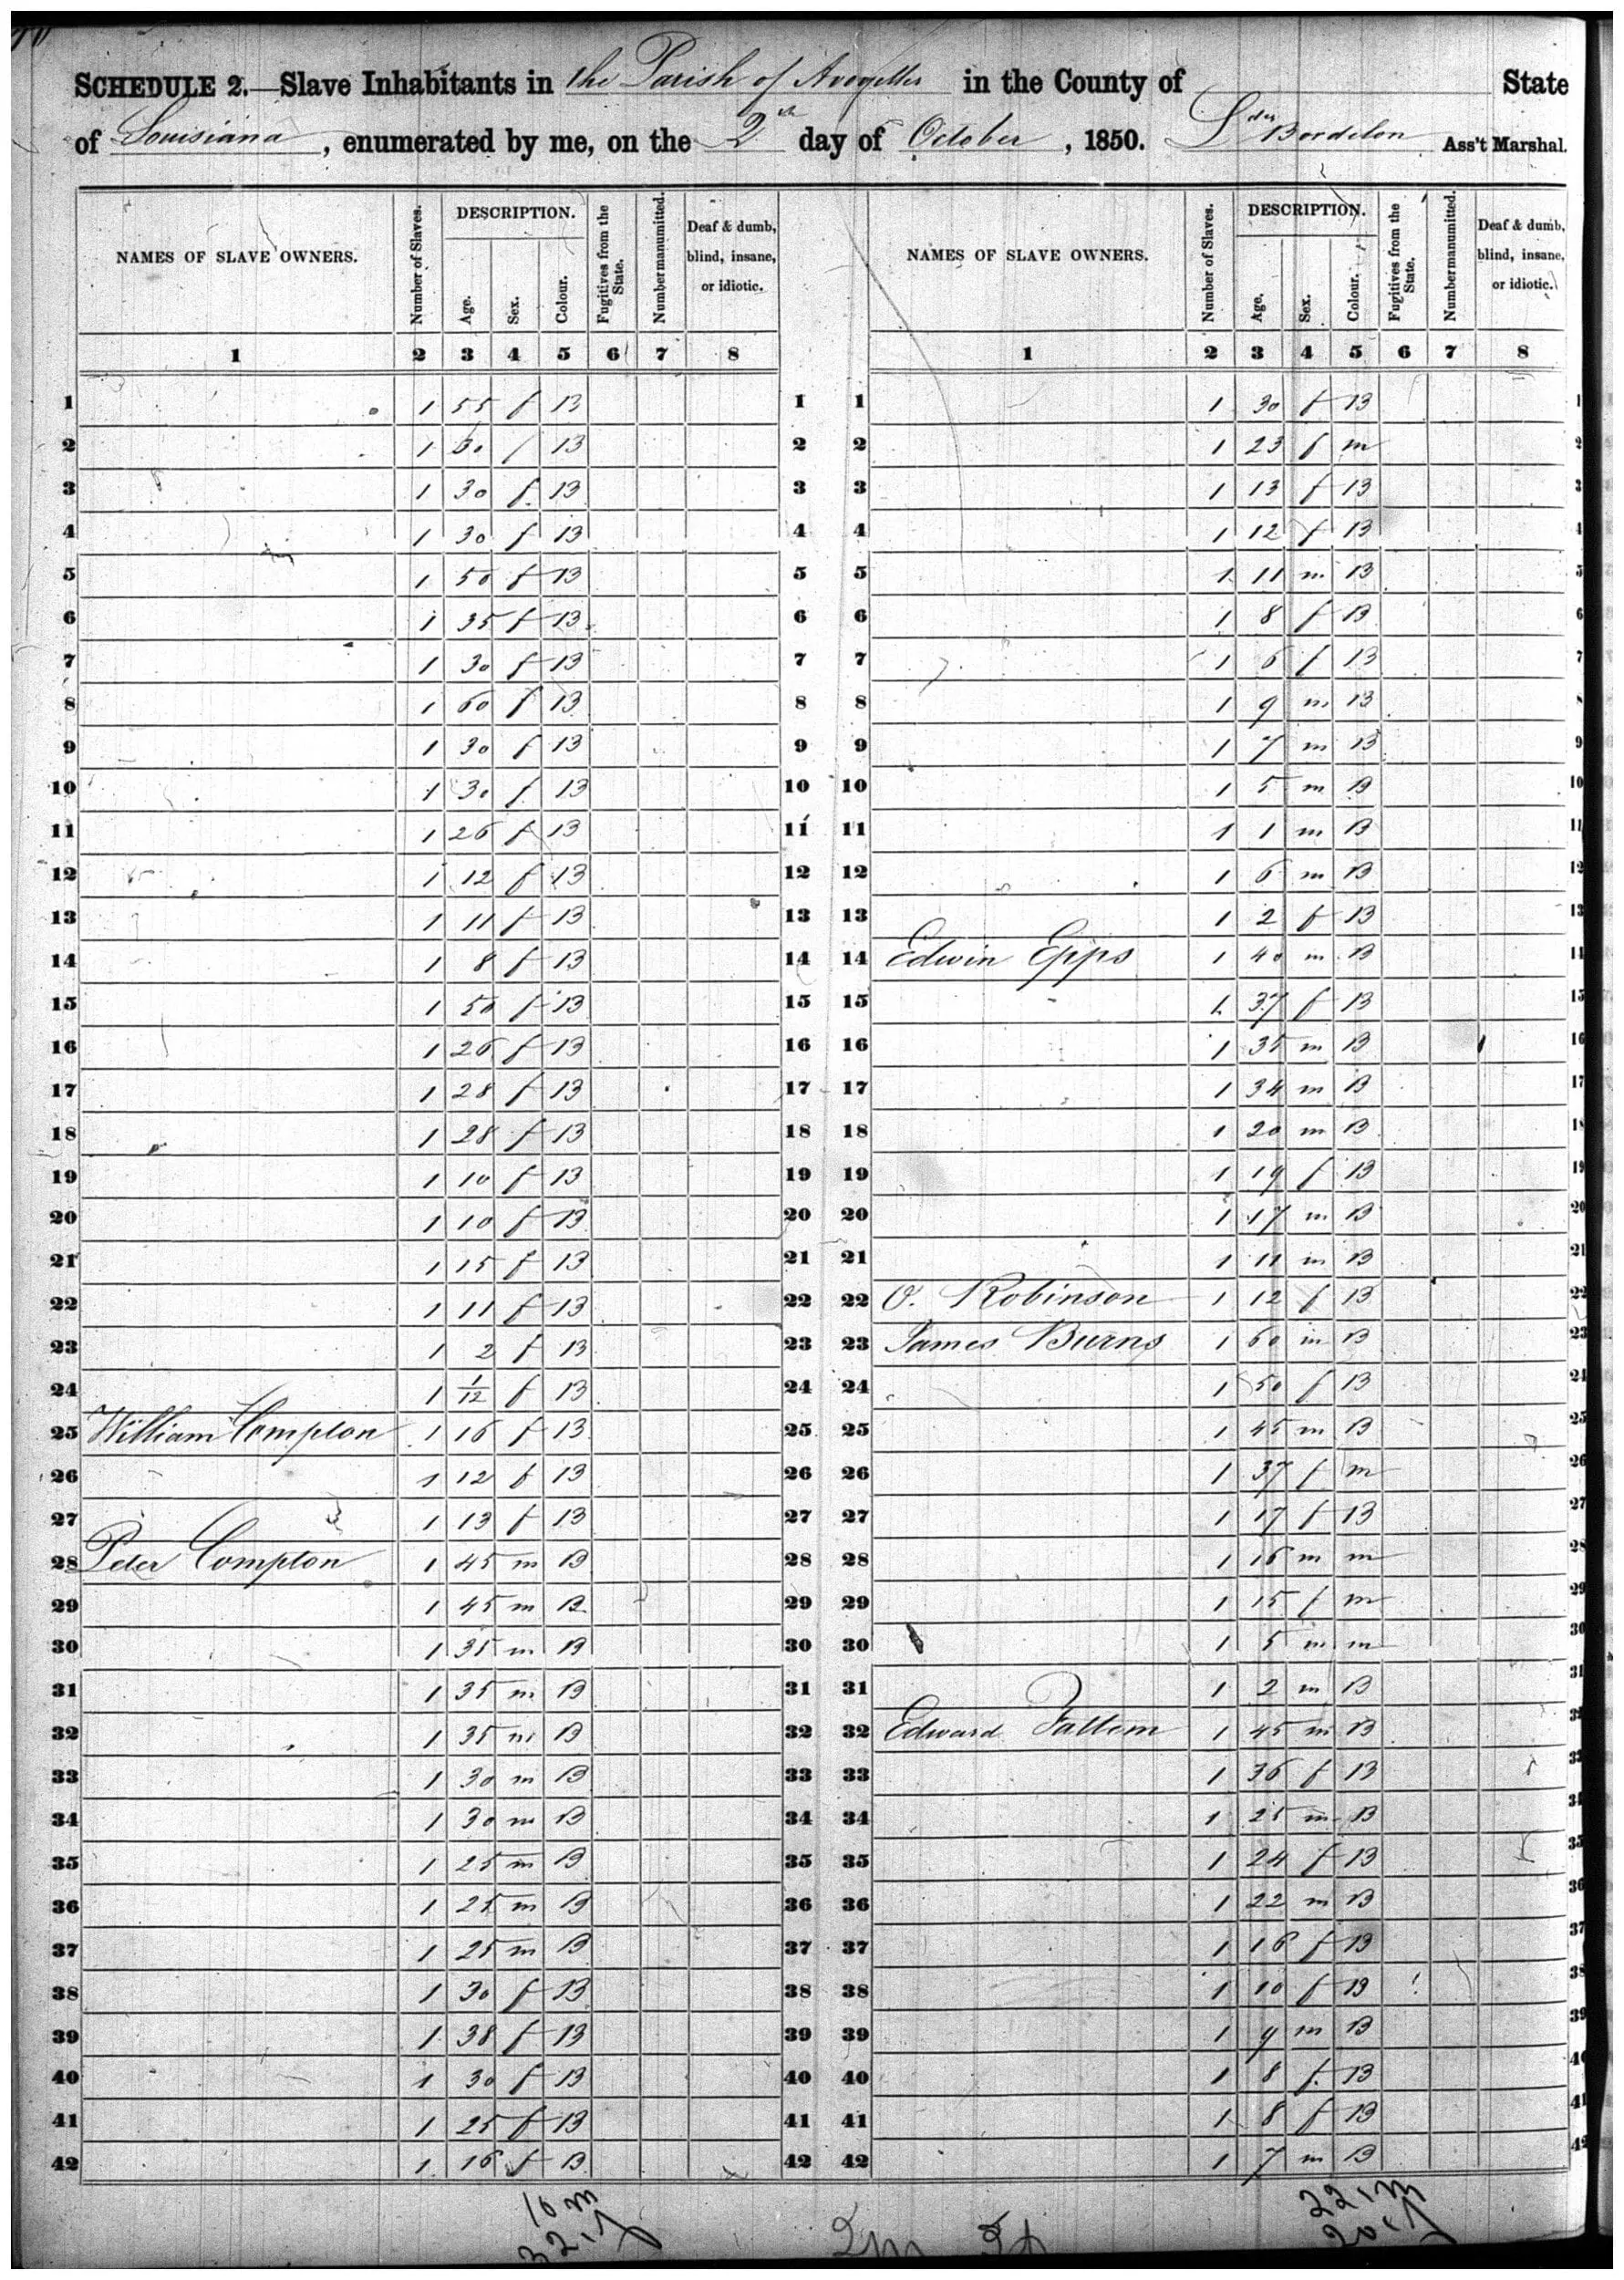 SCHEDULE 2.—Slave Inhabitants in the Parish of Avoyelles in the County of State
of Louisiana, enumerated by me, on the 2 day of October, 1850. Bordelon Ass't Marshal.
NAMES OF SLAVE OWNERS. Number of Slaves. DESCRIPTION. Age. Sex. Colour. Fugitives from the State. Number manumitted. Deaf & dumb, blind, insane, or idiotic. NAMES OF SLAVE OWNERS. Number of Slaves. DESCRIPTION. Age. Sex. Colour. Fugitives from the State. Number manumitted. Deaf & dumb, blind, insane, or idiotic.
1 2 3 4 5 6 7 8 1 2 3 4 5 6 7 8
1 1 55 f B 1 1 1 30 f B 1
2 1 B 2 2 1 23 f m 2
3 1 30 f B 3 3 1 13 f B 3
4 1 30 f B 4 4 1 12 f B 4
5 1 50 f B 5 5 1 11 m B 5
6 1 35 f B 6 6 1 8 f B 6
7 1 30 f B 7 7 1 6 f B 7
8 1 60 f B 8 8 1 9 m B
9 1 30 f B 9 9 1 7 m B 9
10 1 30 f B 10 10 1 5 m B 10
11 1 26 f B 11 11 1 1 m B 11
12 1 12 f B 12 12 1 6 m B 12
13 1 11 f B 13 13 1 2 f B 13
14 1 8 f B 14 14 Edwin Epps 1 40 m B 14
15 1 50 f B 15 15 1 37 f B 15
16 1 26 f B 16 16 1 35 m B 16
17 1 28 f B 17 17 1 34 m B 17
18 1 28 f B 18 18 1 20 m B 18
19 1 10 f B 19 19 1 19 f B 19
20 1 10 f B 20 20 1 17 m B 20
21 1 15 f B 21 21 1 11 m B 21
22 1 11 f B 22 22 O. Robinson 1 12 f B 22
23 1 2 f B 23 23 James Burns 1 60 m B 23
24 1 1/12 f B 24 24 1 50 f B 24
25 William Compton 1 16 f B 25 25 1 45 m B 25
26 1 12 f B 26 26 1 37 f m 26
27 1 13 f B 27 27 1 17 f B 27
28 Peter Compton 1 45 m B 28 28 1 16 m m 28
29 1 45 m B 29 29 1 15 f m 29
30 1 35 m B 30 30 1 5 m m 30
31 1 35 m B 31 31 1 2 m B 31
32 1 35 m B 32 32 Edward 1 45 m B 32
33 1 30 m B 33 33 1 36 f B 33
34 1 30 m B 34 34 1 25 m B 34
35 1 25 m B 35 35 1 24 f B 35
36 1 25 m B 36 36 1 22 m B 36
37 1 25 m B 37 37 1 16 f B 37
38 1 30 f B 38 38 1 10 f B 38
39 1 38 f B 39 39 1 9 m B 39
40 1 30 f B 40 40 1 8 f B 40
41 1 25 f B 41 41 1 8 f B 41
42 1 16 f B 42 42 1 7 m B 42
10 m 22 m
32 f 2m 2f 20 f